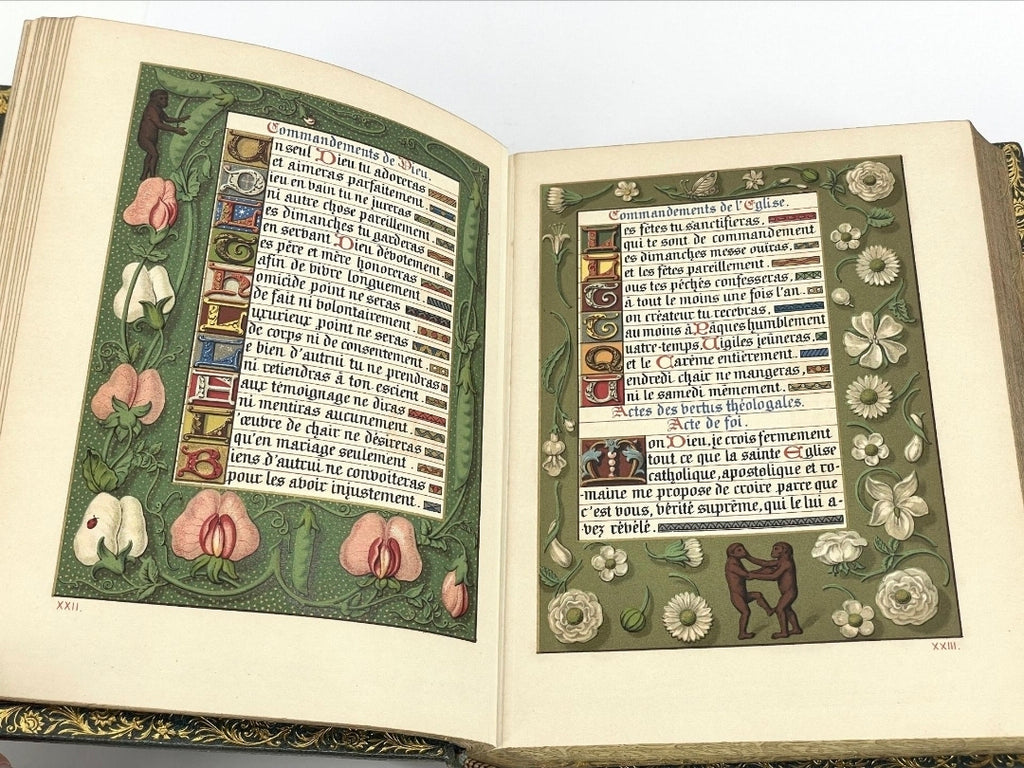 Commandements de Dieu.
Un seul Dieu tu adoreras
et aimeras parfaitement.
Dieu en vain tu ne jureras
ni autre chose pareillement.
Les dimanches tu garderas
en servant Dieu dévotement.
Tes père et mère honoreras
afin de vivre longuement.
Homicide point ne seras
de fait ni volontairement.
Luxurieux point ne seras
de corps ni de consentement.
Le bien d'autrui tu ne prendras
ni retiendras à ton escient.
Faux témoignage ne diras
ni mentiras aucunement.
L'œuvre de chair ne désireras
qu'en mariage seulement.
Biens d'autrui ne convoiteras
pour les avoir injustement.
XXII.
Commandements de l'Eglise.
Les fêtes tu sanctifieras,
qui te sont de commandement
Les dimanches messe ouiras,
et les fêtes pareillement.
Tous tes péchés confesseras,
à tout le moins une fois l'an.
Ton créateur tu recevras,
au moins à Pâques humblement
Quatre-temps, Vigiles jeûneras,
et le Carême entièrement.
Vendredi chair ne mangeras,
ni le samedi mêmement.
Actes des vertus théologales.
Acte de foi.
Mon Dieu, je crois fermement
tout ce que la sainte Eglise
catholique, apostolique et ro-
maine me propose de croire parce que
c'est vous, vérité suprême, qui le lui a-
vez révélé.
XXIII.